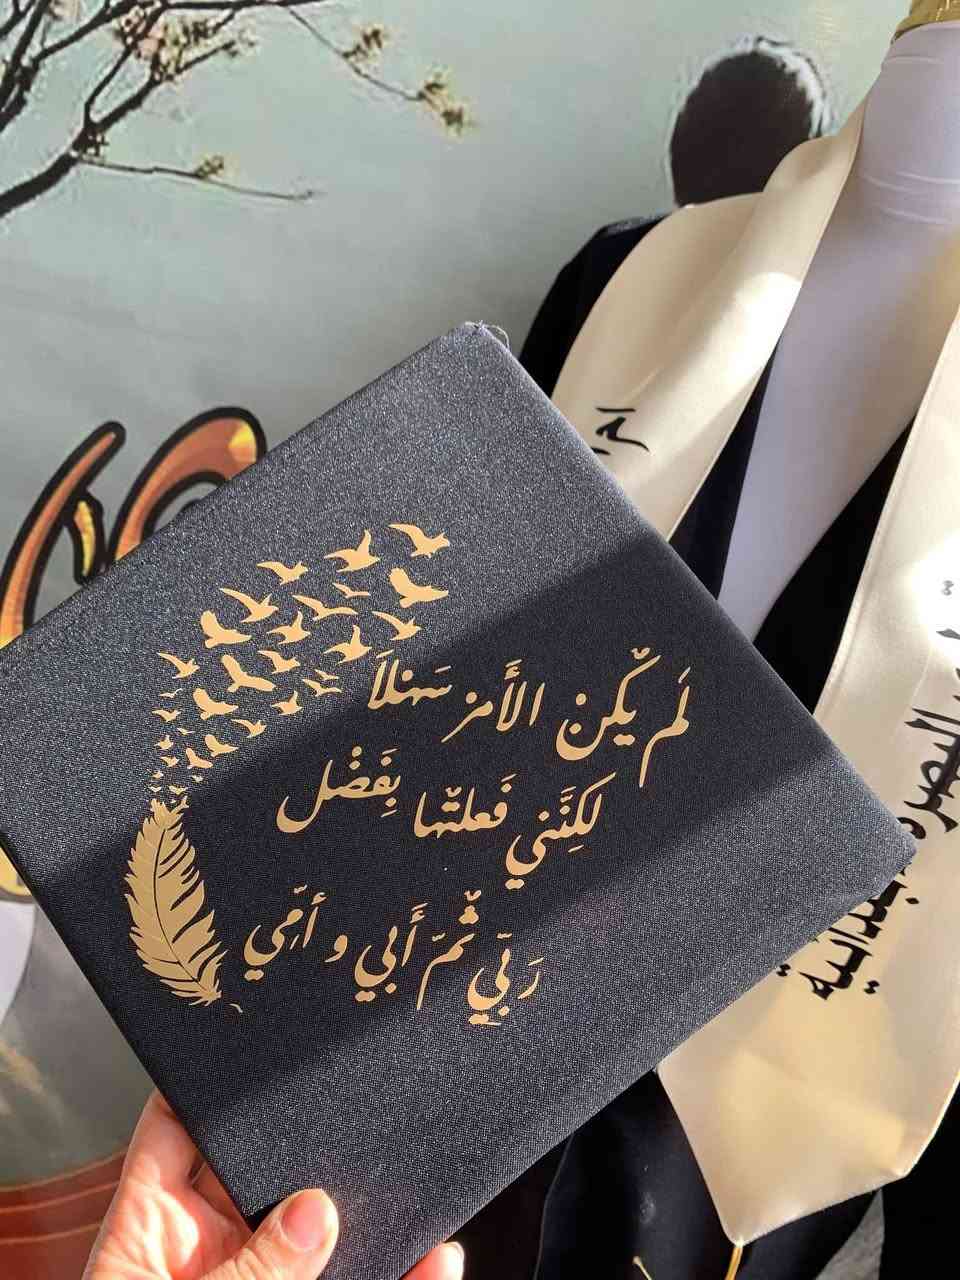 لَم يَكُنْ الأَمرْ سَهْلاً
لكِنَّني فَعلتْها بِفَضْل
رَبّي ثُمّ أَبي و أمّي